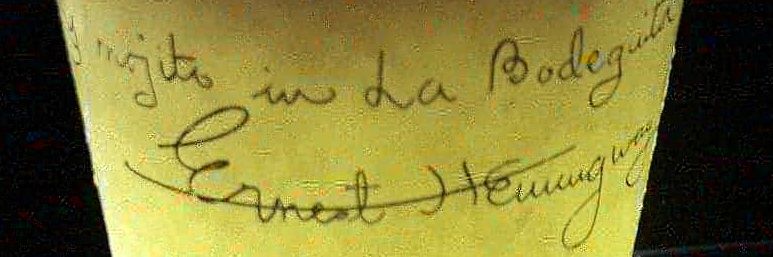 y mojito in La Bodeguita
Ernest Hemingway